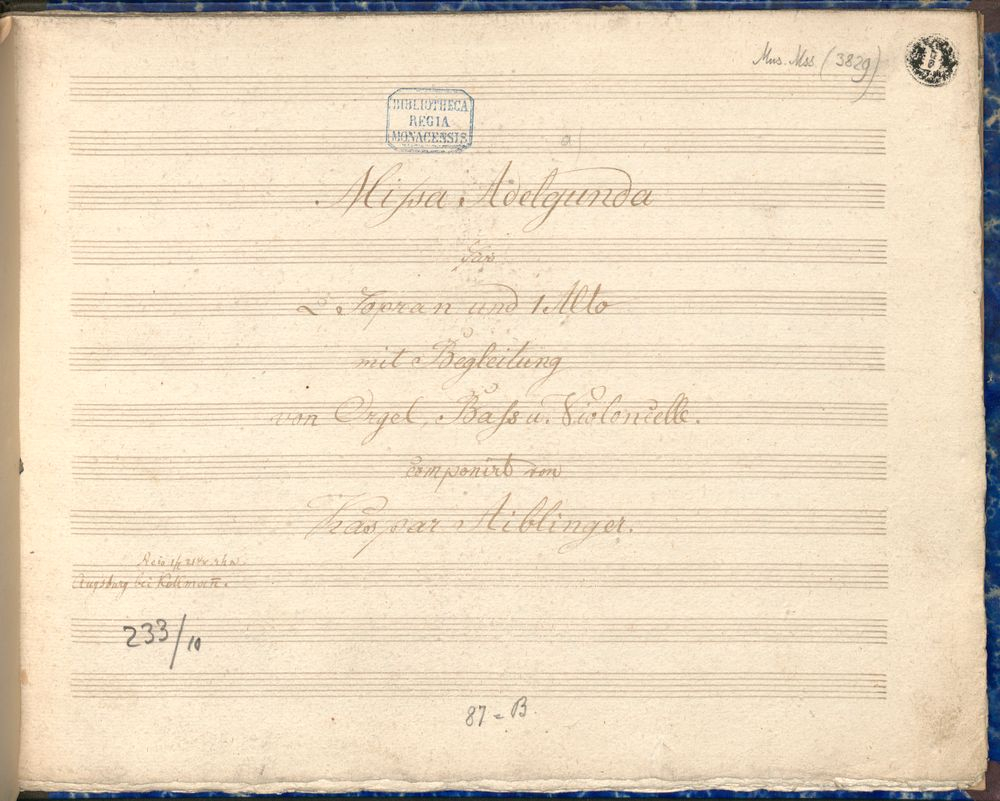 Mus. Mss. (3829)
BIBLIOTHECA
REGIA
MONACENSIS.
a)
Missa Adelgunda
für
2 Sopran und 1 Alto
mit Begleitung
von Orgel, Bass u. Violoncelle.
componirt von
Kaspar Aiblinger.
Augsburg bei Kollmann.
233/10
87 = B.